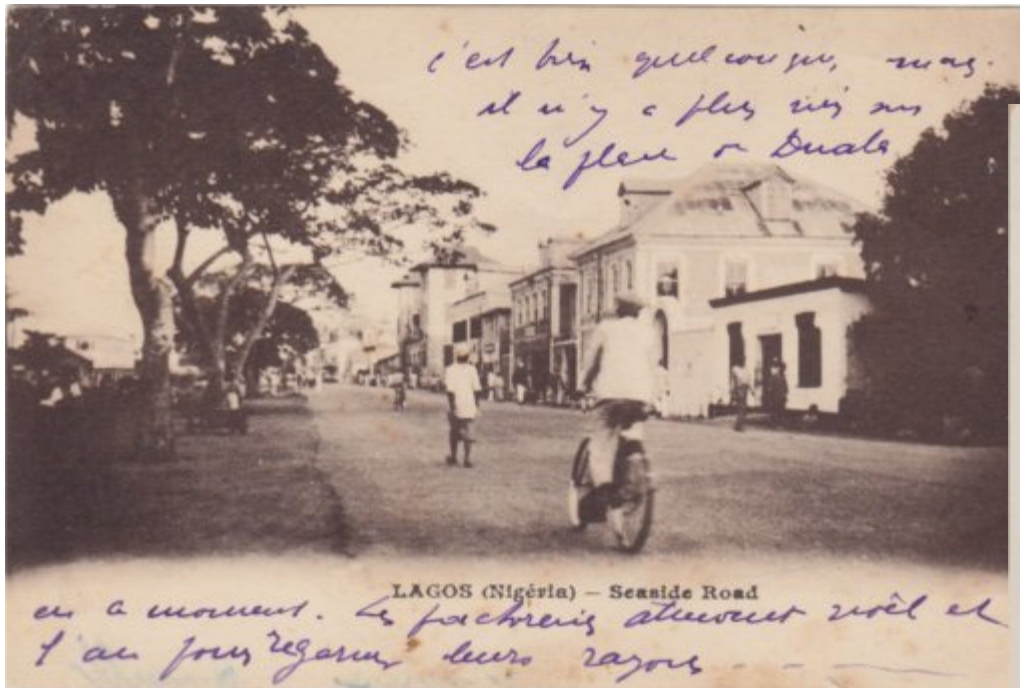 c'est bien quelconque, mais
il n'y a plus rien sur
la place de Duala
LAGOS (Nigéria) – Seaside Road
en ce moment. Les factoreries attendent noël et
l'an pour regarnir leurs rayons